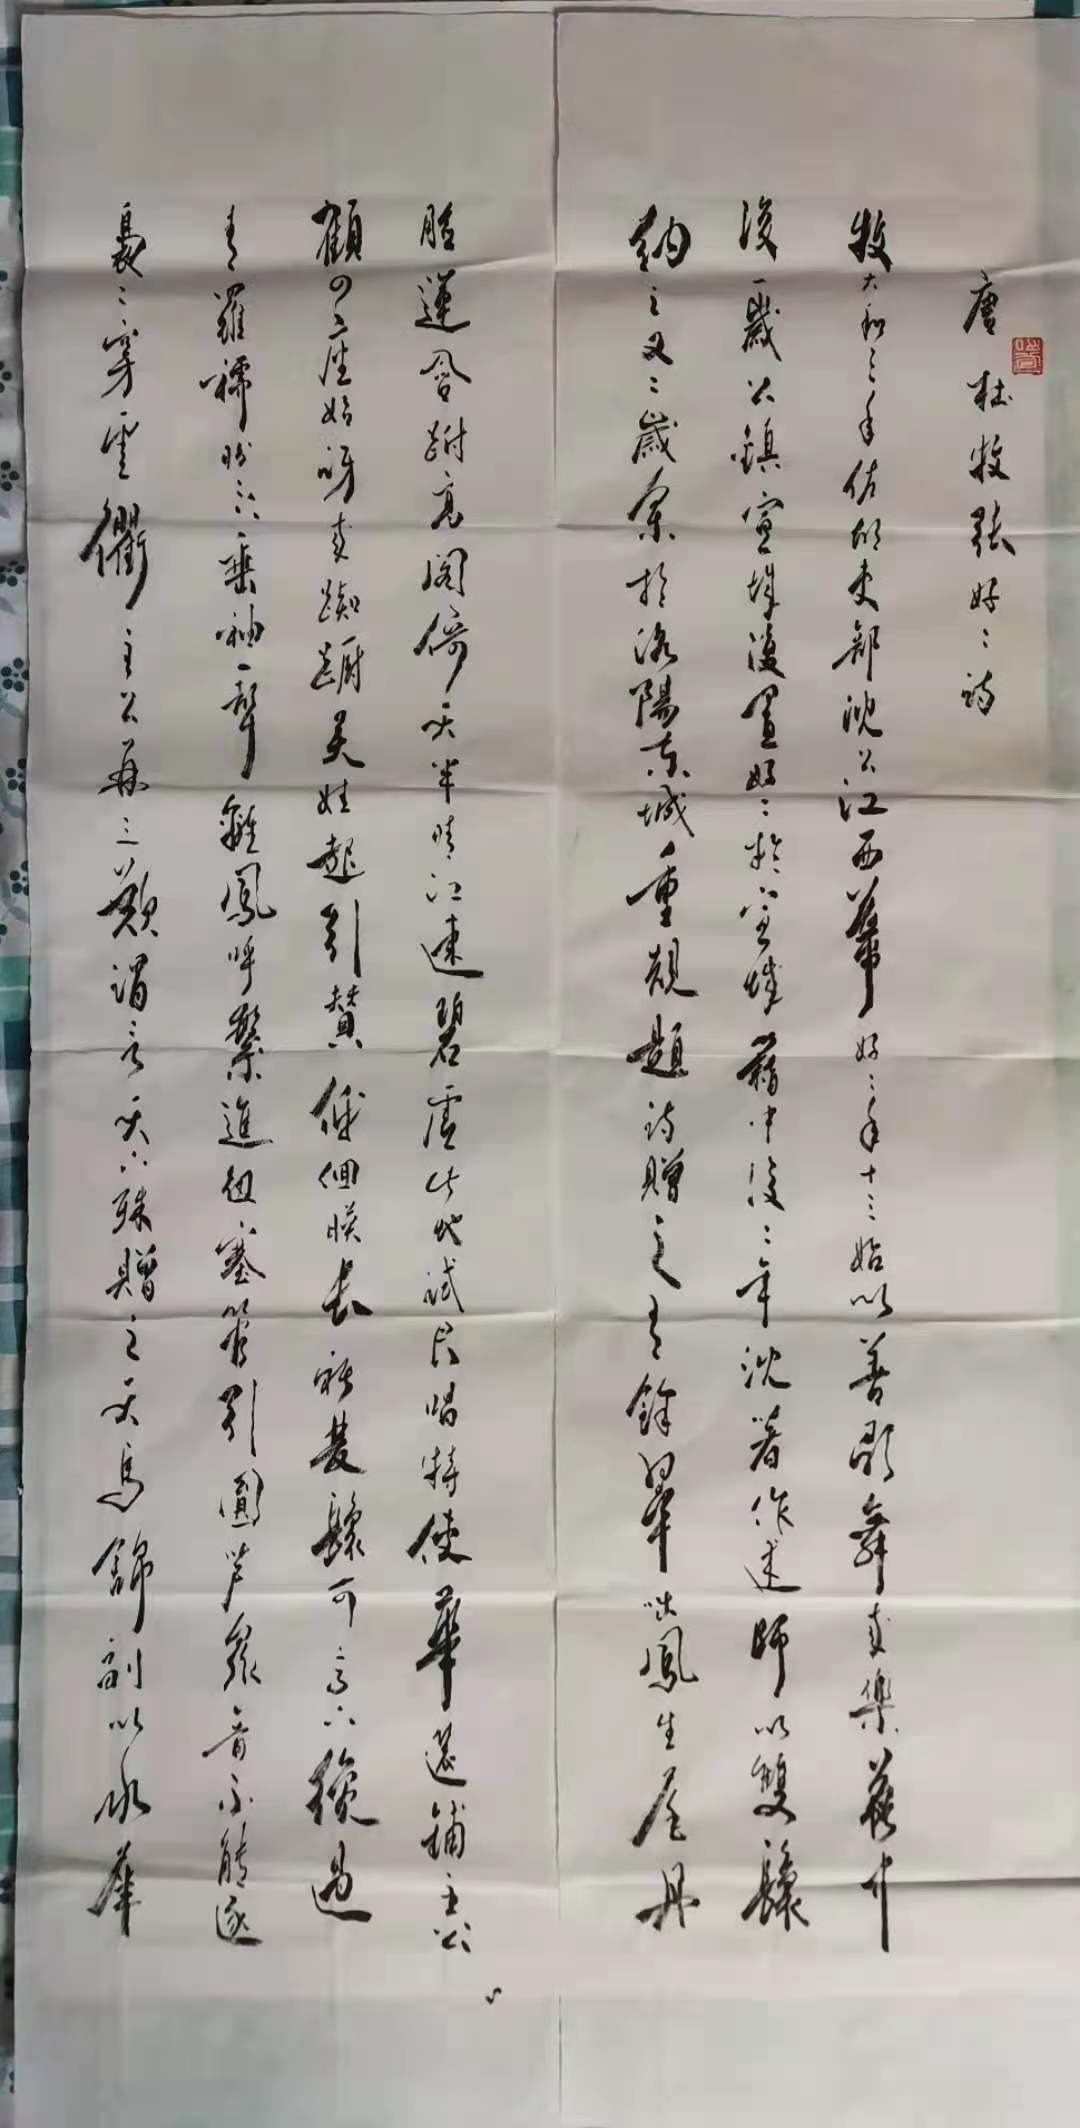 唐杜牧張好ミ詩
牧大和三年佐故吏部沈公江西幕好ミ年十三始以善歌舞来樂藉中
後一歲公鎮宣城復置好ミ於宣城藉中後二年沈著作述師以雙鬟
納之又二歲余於洛陽東城重覩題詩贈之君餘翠茁鳳生尾丹
臉蓮含跗高閣倚天半晴江連碧虛此地試君唱特使華筵鋪主公
顧四座始訝来踟躕吴娃起引贊低佪暎長裾雙鬟可高下纔過
青羅襦盼ミ下垂袖一聲離鳳呼繁進迸塞管引圓芦衆音不能逐
裊ミ穿雲衢主公再三歎謂言天下殊贈之天馬錦副以水犀